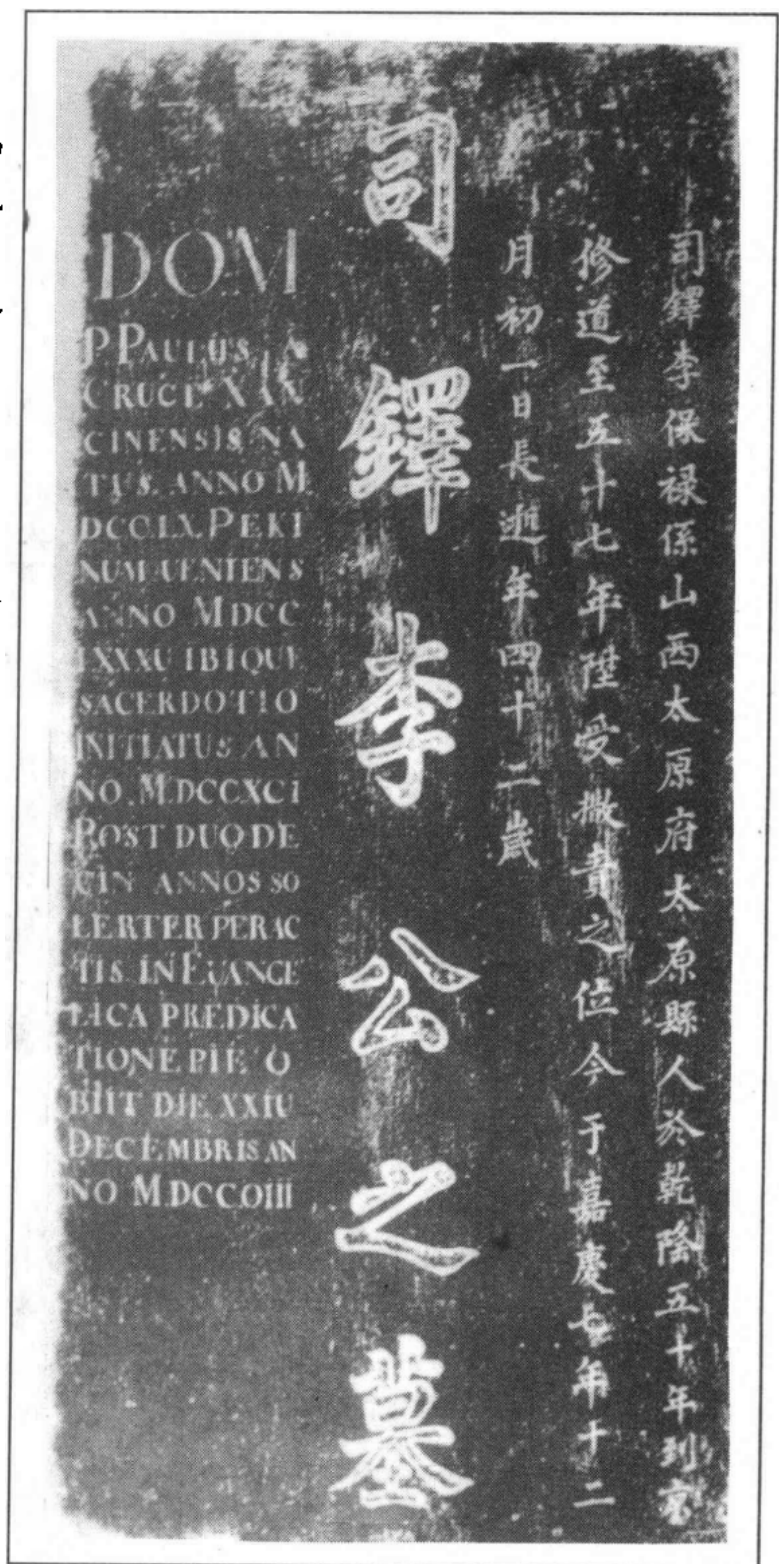 司鐸李保禄係山西太原府太原縣人於乾隆五十年到京
修道至五十七年陞受撒責之位今于嘉慶七年十二
月初一日長逝年四十二歲
司鐸李公之墓
DOM
P PAULUS A
CRUCE XAN
CINENSIS NA
TUS. ANNO M
DCCLX. PEKI
NUM UENIENS
ANNO MDCC
LXXXU IBIQUE
SACERDOTIO
INITIATUS AN
NO. M.DCCXCI
POST DUODE
CIN ANNOS SO
LERTER PERAC
TIS IN EUANGE
LICA PREDICA
TIONE PIE O
BIIT DIE XXIU
DECEMBRIS AN
NO M.DCCOIII